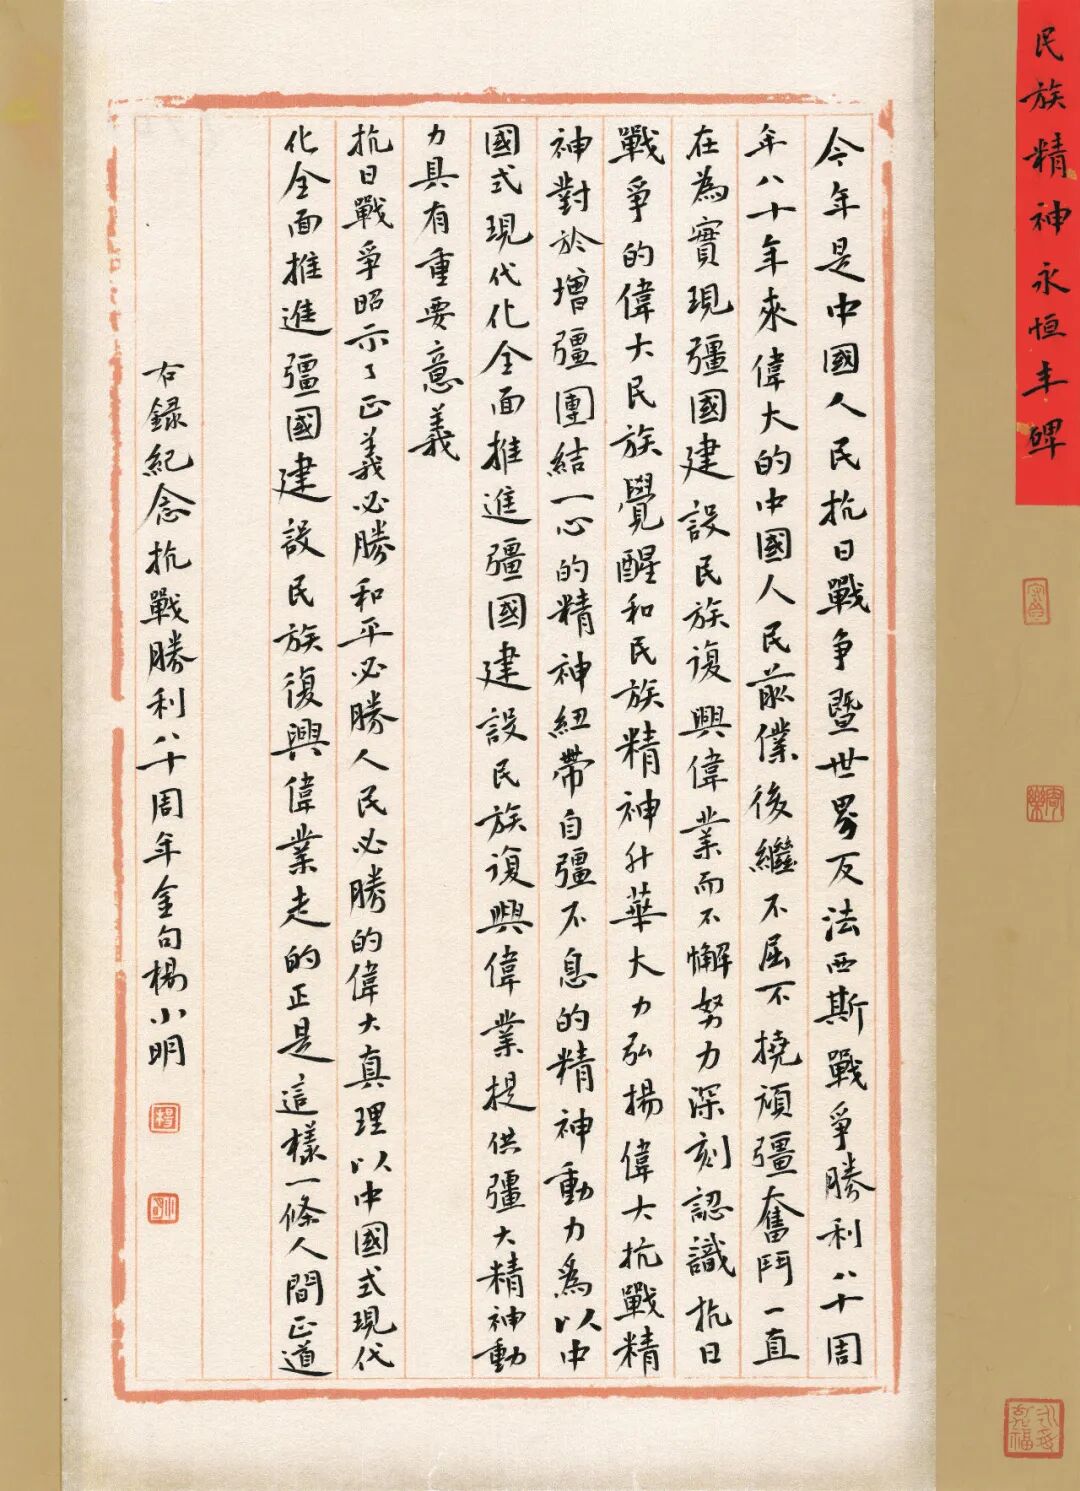 民族精神永恒丰碑
今年是中國人民抗日戰争暨世界反法西斯戰爭勝利八十周
年八十年來偉大的中國人民前僕後繼不屈不撓頑彊奮鬥一直
在為實現彊國建設民族復興偉業而不懈努力深刻認識抗日
戰爭的偉大民族覺醒和民族精神升華大力弘揚偉大抗戰精
神對於增彊團結一心的精神紐帶自彊不息的精神動力為以中
國式現代化全面推進彊國建設民族復興偉業提供彊大精神動
力具有重要意義
抗日戰爭昭示了正義必勝和平必勝人民必勝的偉大真理以中國式現代
化全面推進彊國建設民族復興偉業走的正是這樣一條人間正道
右録紀念抗戰勝利八十周年金句楊小明